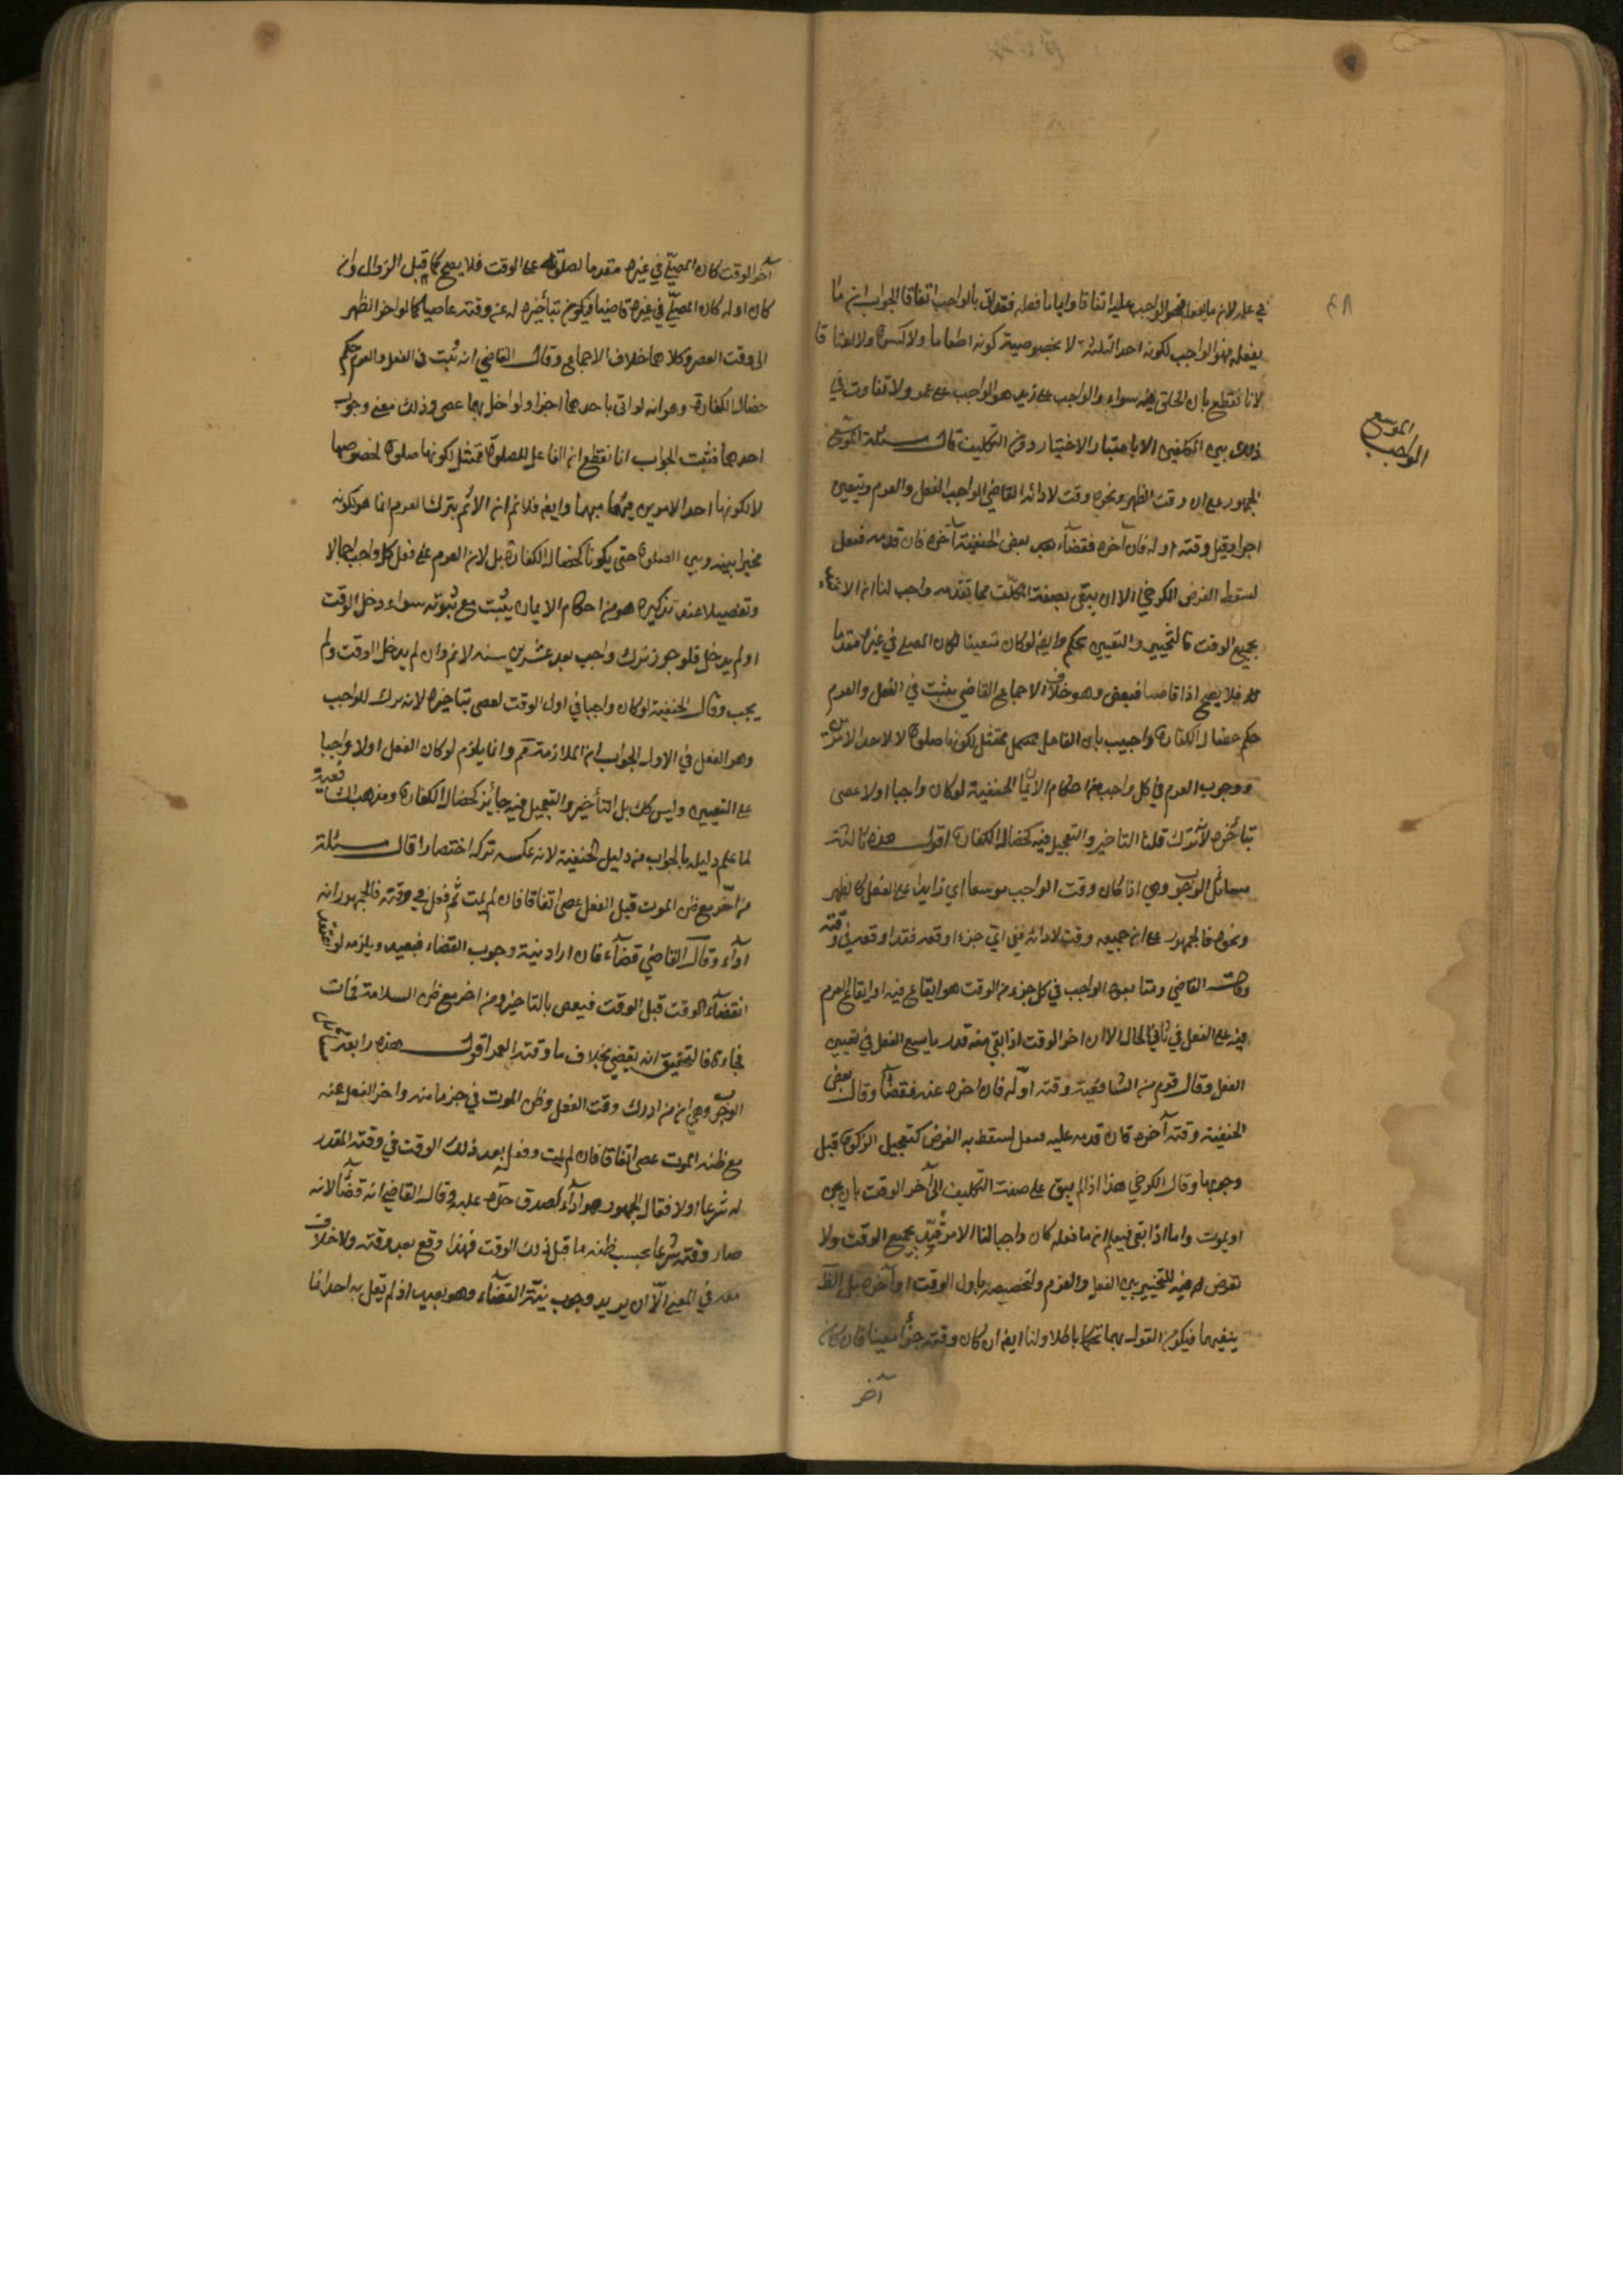 في علمه لان ما يفعله فهو الواجب عليه اتفاقا وايا ما فعله فقد اتى بالواجب اتفاقا الجواب ان ما
يفعله فهو الواجب لكونه احد الثلثة لا بخصوصية كونه اطعاما ولا كسوة ولا اعتاقا
لانا نقطع بان الخلق فيه سواء والواجب على زيد هو الواجب على عمرو ولا تفاوت في
ذلك بين المكلفين الا باعتبار الاختيار دون التكليف قال مسئلة الموسع
الموسع
الواجب
الجمهور على ان وقت الظهر ونحوه وقت لادائه القاضي الواجب الفعل والعزم ويتعين
اخرا وقيل وقته اوله فان آخره فقضاء بعض الحنفية آخره فان قدمه فنفل
يسقط الفرض الكرخي الا ان يبقى بصفة المكلف فما قدمه واجب لنا ان الامر
بجميع الوقت فالتخيير والتعيين تحكم وايضا لو كان معينا لكان المصلي في غيره مقدما
فلا يصح او قاضيا فيعصي وهو خلاف الاجماع القاضي يثبت في الفعل والعزم
حكم خصال الكفارة واجيب بان الفاعل ممتثل لكونها صلوة لا لاحد الامرين
ووجوب العزم في كل واجب من احكام الايمان الحنفية لو كان واجبا اولا عصى
بتأخيره لانه ترك قلنا التاخير والتعجيل فيه كخصال الكفارة اقول هذه ثالثة
مسائل الوجوب وهي اذا كان وقت الواجب موسعا اي زايدا على الفعل كالظهر
ونحوه فالجمهور على ان جميعه وقت لادائه ففي اي جزء اوقعه فقد اوقعه في وقته
وقال القاضي ومتابعوه الواجب في كل جزء من الوقت هو ايقاع فيه او ايقاع العزم
فيه على الفعل في ثاني الحال الا ان اخر الوقت اذا بقي منه قدر ما يسع الفعل فيتعين
الفعل وقال قوم من الشافعية وقته اوله فان اخره عنه فقضاء وقال بعض
الحنفية وقته آخره فان قدمه عليه فنفل يسقط به الفرض كتعجيل الزكوة قبل
وجوبها وقال الكرخي هذا اذا لم يبق على صفة التكليف الى آخر الوقت بان يجن
او يموت واما اذا بقي فيعلم ان ما فعله كان واجبا لنا الامر قيد بجميع الوقت ولا
تعرض له فيه للتخيير بين الفعل والعزم ولتخصيصه باول الوقت او آخره بل الظ
ينفيهما فيكون القول بهما تحكما باطلا ولنا ايضا ان كان وقته جزأ معينا فان كان
آخر
آخر الوقت كان المصلي في غيره مقدما لصلوته على الوقت فلا يصح كما قبل الزوال وان
كان اوله كان المصلي في غيره قاضيا فيكون بتأخيره له عن وقته عاصيا كما لو اخر الظهر
الى وقت العصر وكلاهما خلاف الاجماع وقال القاضي انه ثبت في الفعل والعزم حكم
خصال الكفارة وهو انه لو اتى باحدهما اجزأ ولو اخل بهما عصى وذلك معنى وجوب
احدهما فثبت الجواب انا نقطع ان الفاعل للصلوة ممتثل لكونها صلوة لخصوصها
لا لكونها احد الامرين مبهما وايضا فلا نم ان الاثم بترك العزم انما هو لكونه
مخيرا بينه وبين الصلوة حتى يكونا كخصال الكفارة بل لان العزم على فعل كل واجب اجمالا
وتفصيلا عند تذكيره هو من احكام الايمان يثبت مع ثبوته سواء دخل الوقت
او لم يدخل فلو جوز ترك واجب بعد عشرين سنة لاثم وان لم يدخل الوقت ولم
يجب وقال الحنفية لو كان واجبا في اول الوقت لعصى بتاخيره لانه ترك للواجب
وهو الفعل في الاول الجواب ان الملازمة مم وانما يلزم لو كان الفعل اولا واجبا
على التعيين وليس كك بل التأخير والتعجيل فيه جايز كخصال الكفارة ومذهب الشافعية
لما علم دليله بالجواب من دليل الحنفية لانه عكسه تركه اختصارا قال مسئلة
من اخر مع ظن الموت قبل الفعل عصى اتفاقا فان لم يمت ثم فعله في وقته فالجمهور انه
اداء وقال القاضي قضاء فان اراد نية وجوب القضاء فبعيد ويلزمه لو اعتقد
انقضاء الوقت قبل الوقت فيعصي بالتاخير ومن اخر مع ظن السلامة فمات
فجاءة فالتحقيق انه لا يعصي بخلاف ما وقته العمر اقول هذه رابعة مسائل
الوجوب وهي ان من ادرك وقت الفعل وظن الموت في جزء ما منه واخر الفعل عنه
مع ظنه الموت عصى اتفاقا فان لم يمت وفعل بعد ذلك الوقت في وقته المقدر
له شرعا اولا فقال الجمهور هو اداء لصدق حده عليه وقال القاضي انه قضاء لانه
صار وقته شرعا بحسب ظنه ما قبل ذلك الوقت فهذا وقع بعد وقته ولا خلاف
معه في المعنى الا ان يريد وجوب نية القضاء وهو بعيد اذ لم يقل به احد انما